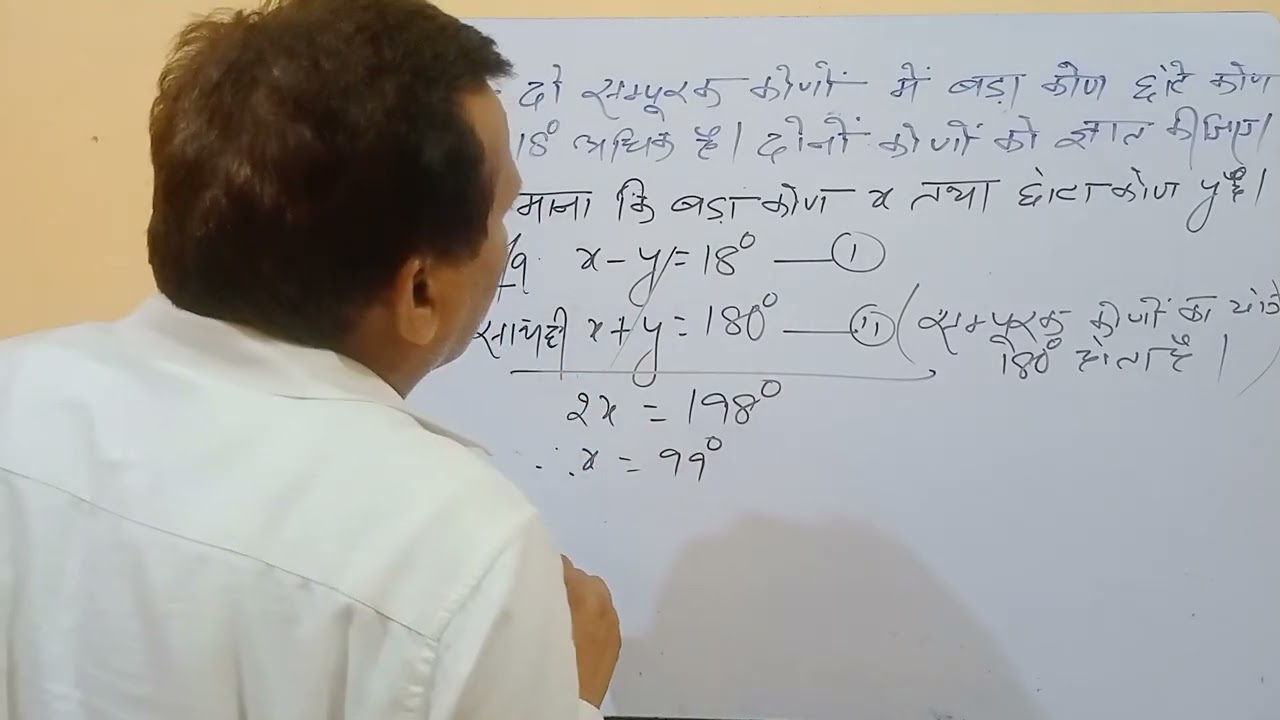 दो सम्पूरक कोणों में बड़ा कोण छोटे कोण
18° अधिक है। दोनों कोणों को ज्ञात कीजिए।
माना कि बड़ा कोण x तथा छोटा कोण y है।
x - y = 18° —— (i)
साथही x + y = 180° —— (ii) (सम्पूरक कोणों का योग
180° होता है।)
2x = 198°
∴ x = 99°